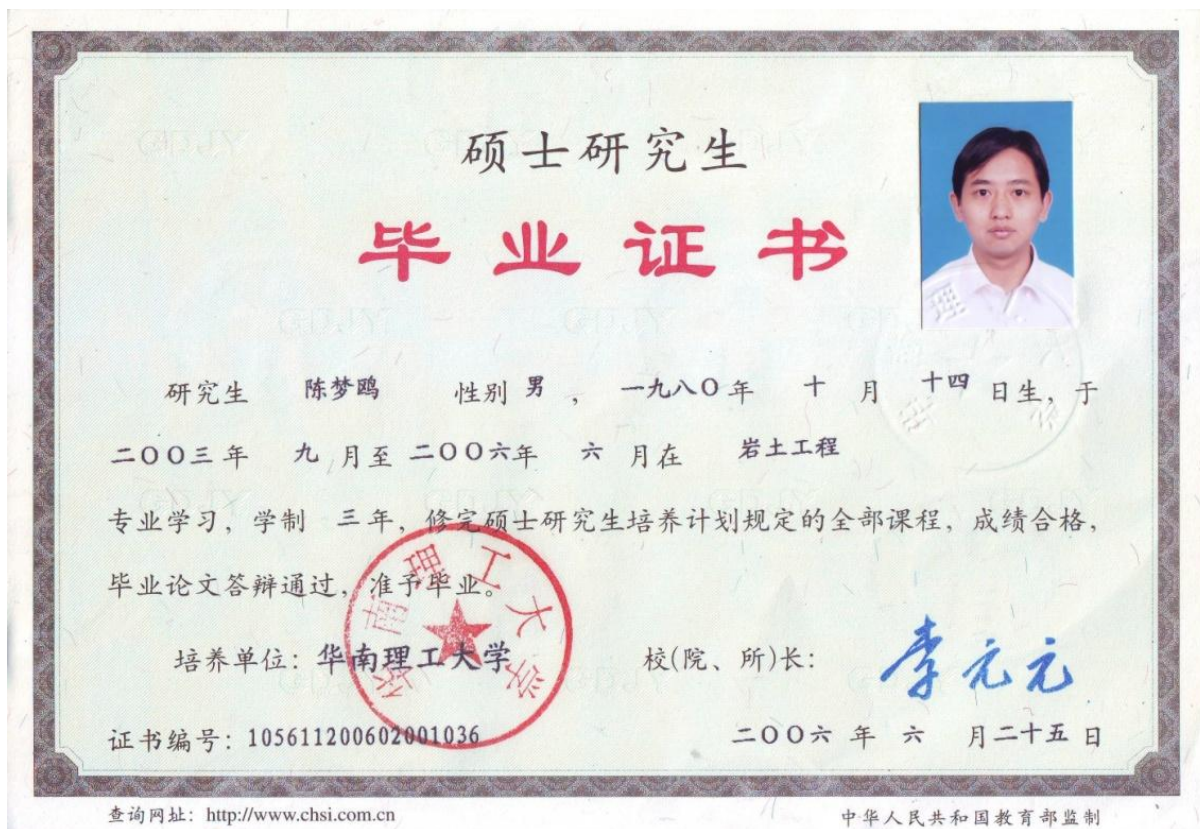 硕士研究生
毕业证书
研究生 陈梦鸥 性别 男 ， 一九八〇年 十 月 十四 日生，于
二〇〇三年 九 月至 二〇〇六年 六 月在 岩土工程
专业学习，学制 三年，修完硕士研究生培养计划规定的全部课程，成绩合格，
毕业论文答辩通过，准予毕业。
华南理工大学
培养单位：华南理工大学 校(院、所)长：李元元
证书编号：105611200602001036 二〇〇六 年 六 月二十五 日
查询网址：http://www.chsi.com.cn 中华人民共和国教育部监制